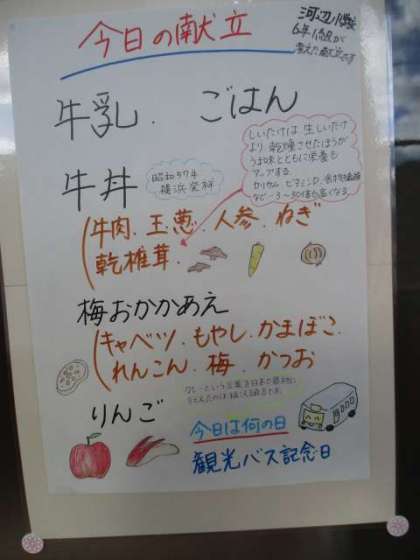 今日の献立
河辺小学校
6年1組が
考えた献立です
牛乳、ごはん
しいたけは 生しいたけ
より 乾燥させたほうが
うま味とともに栄養も
アップする
カリウム ビタミンD 食物繊維
など…3～30倍も高くなる
牛丼
昭和57年
横浜発祥
(牛肉.玉葱.人参.ねぎ
乾椎茸.
梅おかかあえ
(キャベツ.もやし.かまぼこ.
れんこん.梅.かつお
りんご
今日は何の日
観光バス記念日